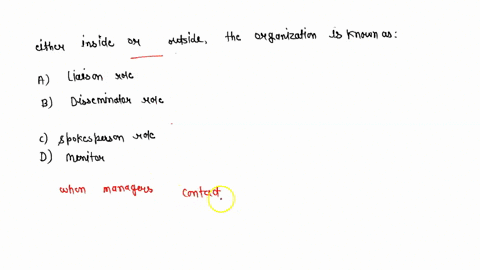 either inside or outside, the organization is known as:
A) Liaison role
B) Disseminator role
C) spokesperson role
D) monitor
when managers contact